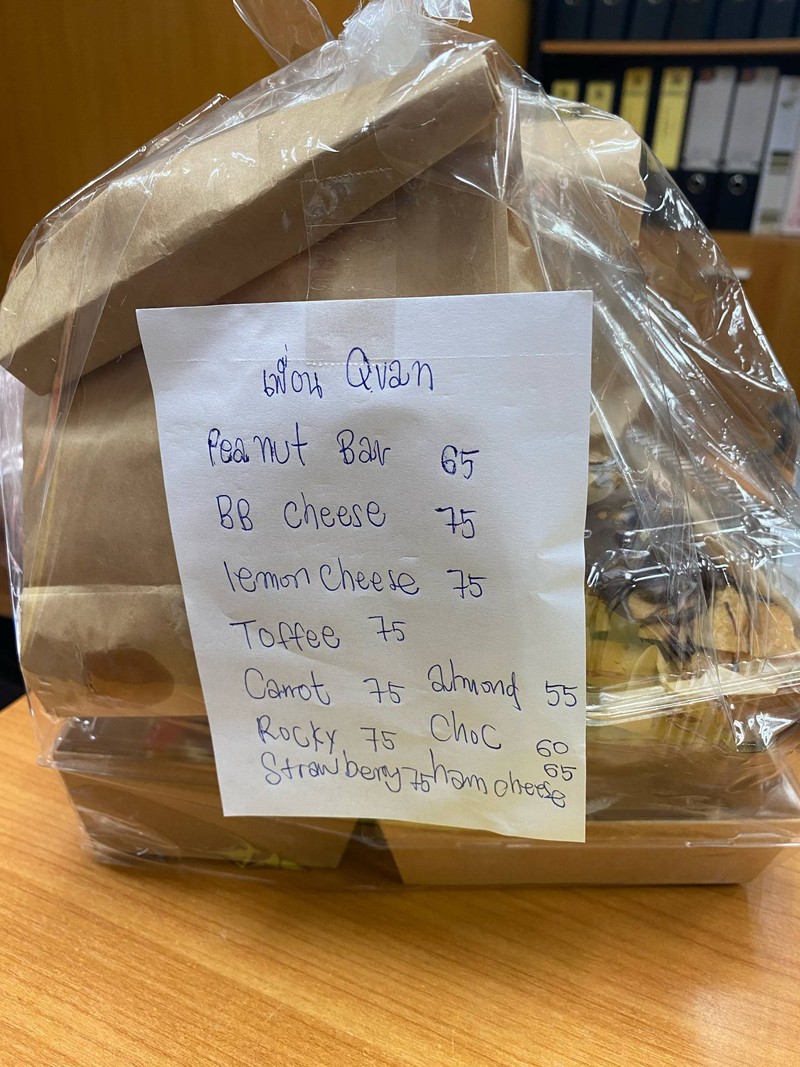 เพื่อน Qvan
Peanut Bar 65
BB cheese 75
lemon cheese 75
Toffee 75
Carrot 75 almond 55
Rocky 75 Choc 60
Strawberry 75 ham cheese 65